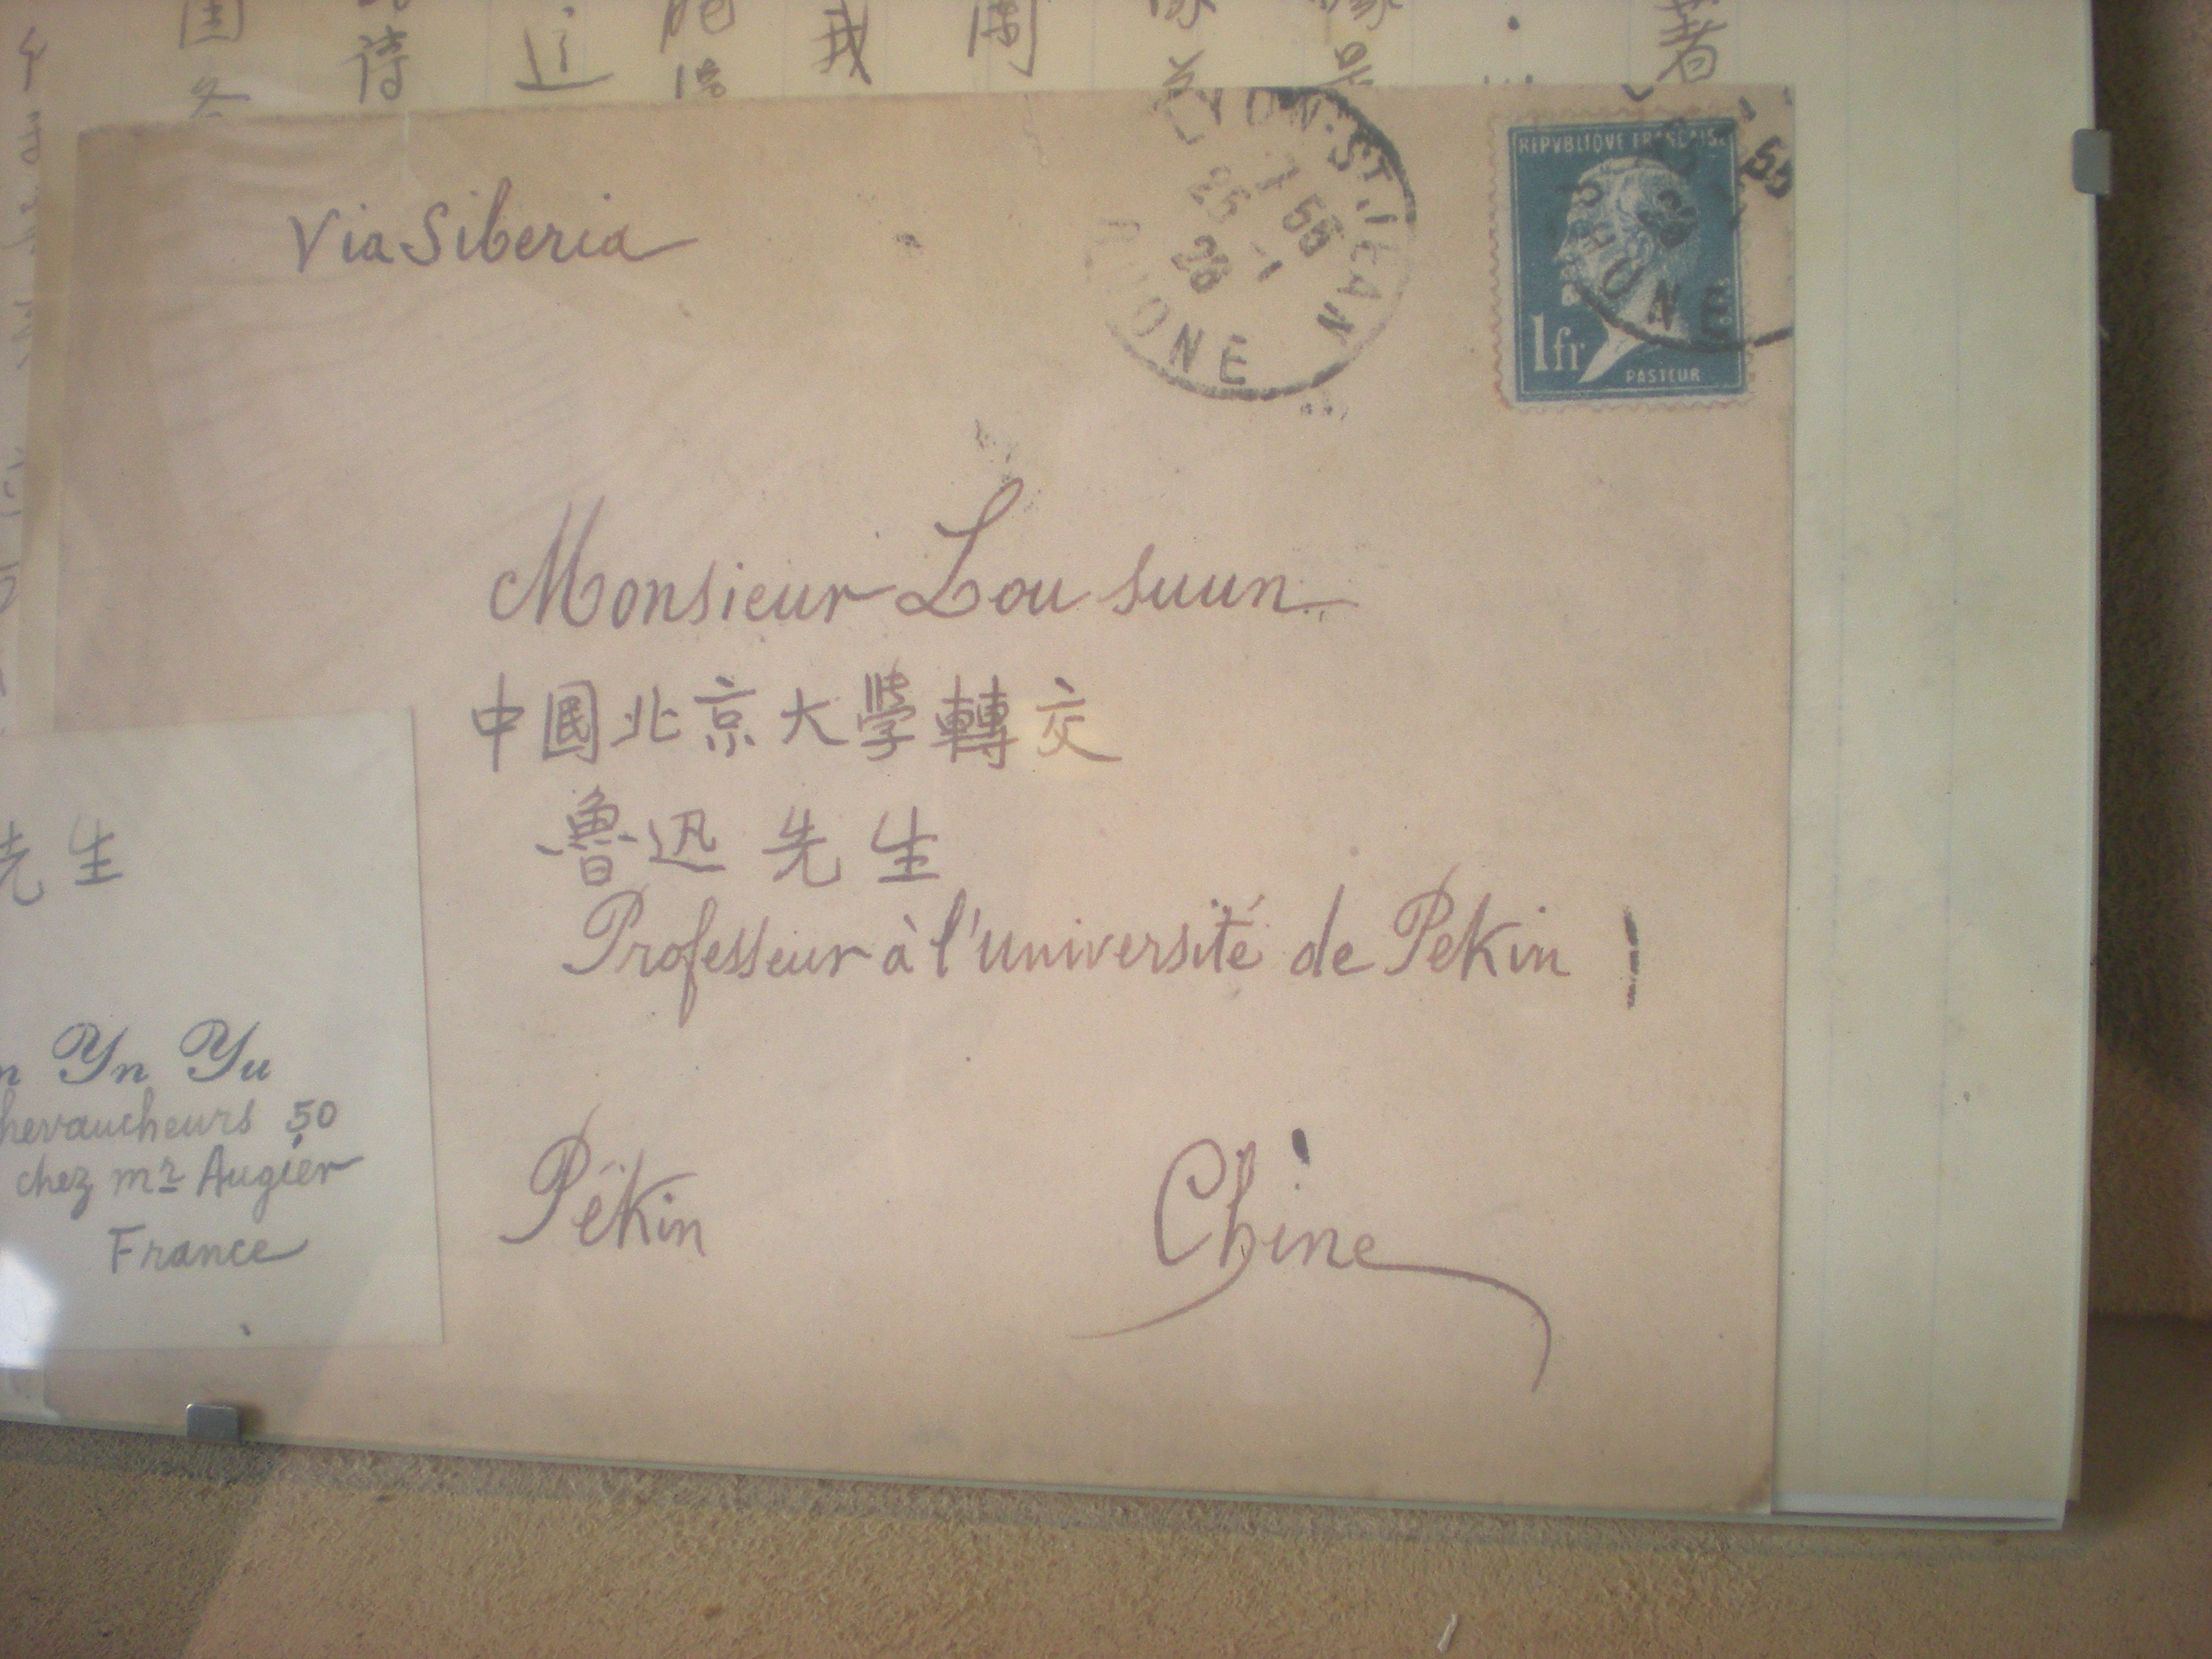 著
我
待
Via Siberia
LYON-ST JEAN
7 55
26 -1
26
RHONE
REPVBLIQVE FRANÇAISE
1fr
PASTEUR
Monsieur Lou suun
中國北京大學轉交
魯迅先生
Professeur à l'université de Pekin
Pékin Chine
先生
Yn Yu
hevaucheurs 50
chez mr Augier
France